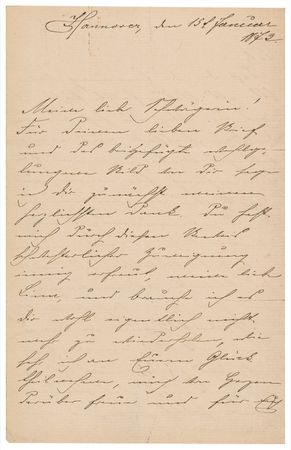 Hannover, den 15t Januar
1873.
Meine liebe Schwägerin!
Für Deinen lieben Brief
und das beigefügte wohlge-
lungene Bild von Dir sage
ich dir zunächst meinen
herzlichsten Dank. Du hast
mich durch diesen Beweis
schwesterlicher Zuneigung
innig erfreut, meine liebe
und brauche ich es
dir wohl eigentlich nicht
mehr zu wiederholen, wie
sehr ich an Eurem Glück
theilnehme, mich von Herzen
darüber freue und für Euch